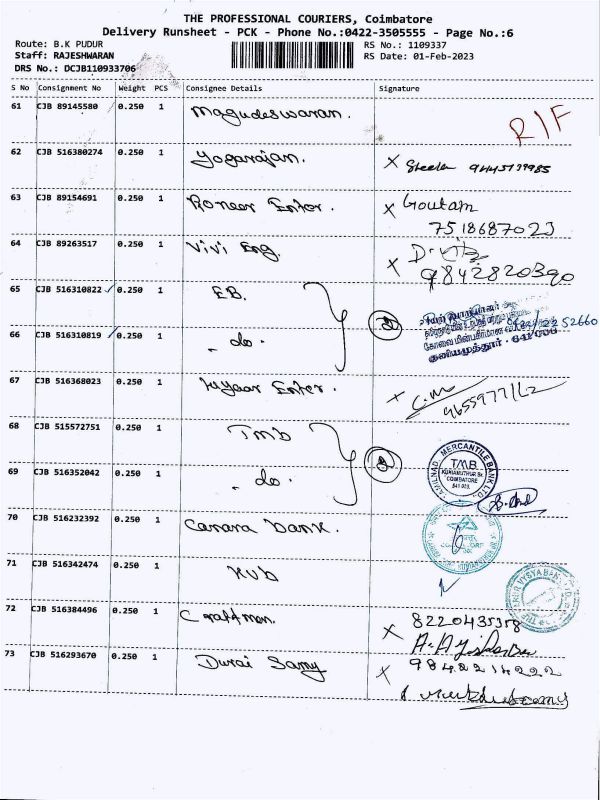 THE PROFESSIONAL COURIERS, Coimbatore
Delivery Runsheet - PCK - Phone No.:0422-3505555 - Page No.:6
Route: B.K PUDUR
RS No.: 1109337
Staff: RAJESHWARAN
RS Date: 01-Feb-2023
DRS No.: DCJB110933706
S No Consignment No Weight PCS Consignee Details Signature
61 CJB 89145580 0.250 1 Magudeswaran. R/F
62 CJB 516380274 0.250 1 Yogarajan. X
63 CJB 89154691 0.250 1 Enter. X Goutam
7518687023
64 CJB 89263517 0.250 1 Vivi Eng. X
9842820390
65 CJB 516310822 0.250 1 EB.
66 CJB 516310819 0.250 1 - do.
67 CJB 516368023 0.250 1 Enter. X
68 CJB 515572751 0.250 1 Tmb
69 CJB 516352042 0.250 1 - do.
TAMILNAD MERCANTILE BANK LTD.
T.M.B.
COIMBATORE
70 CJB 516232392 0.250 1 Canara bank.
71 CJB 516342474 0.250 1 KVB
72 CJB 516384496 0.250 1 Craftman. X
73 CJB 516293670 0.250 1 Durai Samy X